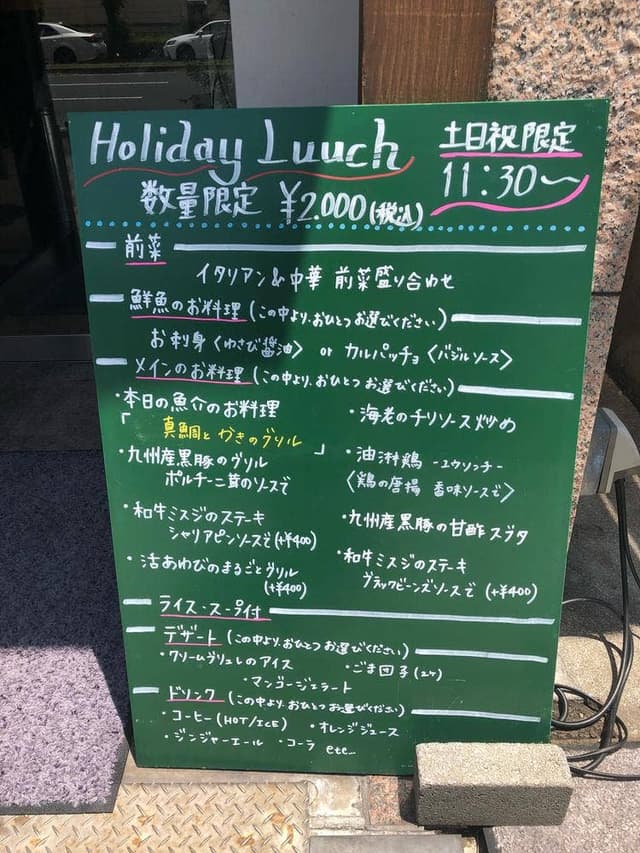 Holiday Luuch
土日祝限定
11:30〜
数量限定 ¥2.000(税込)
前菜
イタリアン&中華 前菜盛り合わせ
鮮魚のお料理(この中より、おひとつお選びください)
お刺身〈わさび醤油〉 or カルパッチョ〈バジルソース〉
メインのお料理(この中より、おひとつお選びください)
・本日の魚介のお料理
「真鯛とかきのグリル」
・九州産黒豚のグリル
ポルチーニ茸のソースで
・和牛ミスジのステーキ
シャリアピンソースで(+¥400)
・活あわびのまるごとグリル
(+¥400)
・海老のチリソース炒め
・油淋鶏 -ユウリンチー-
〈鶏の唐揚 香味ソースで〉
・九州産黒豚の甘酢スブタ
・和牛ミスジのステーキ
ブラックビーンズソースで(+¥400)
ライス・スープ付
デザート(この中より、おひとつお選びください)
・クリームブリュレのアイス ・ごま団子(2ヶ)
・マンゴージェラート
ドリンク(この中より、おひとつお選びください)
・コーヒー(HOT/ICE) ・オレンジジュース
・ジンジャーエール ・コーラ etc...